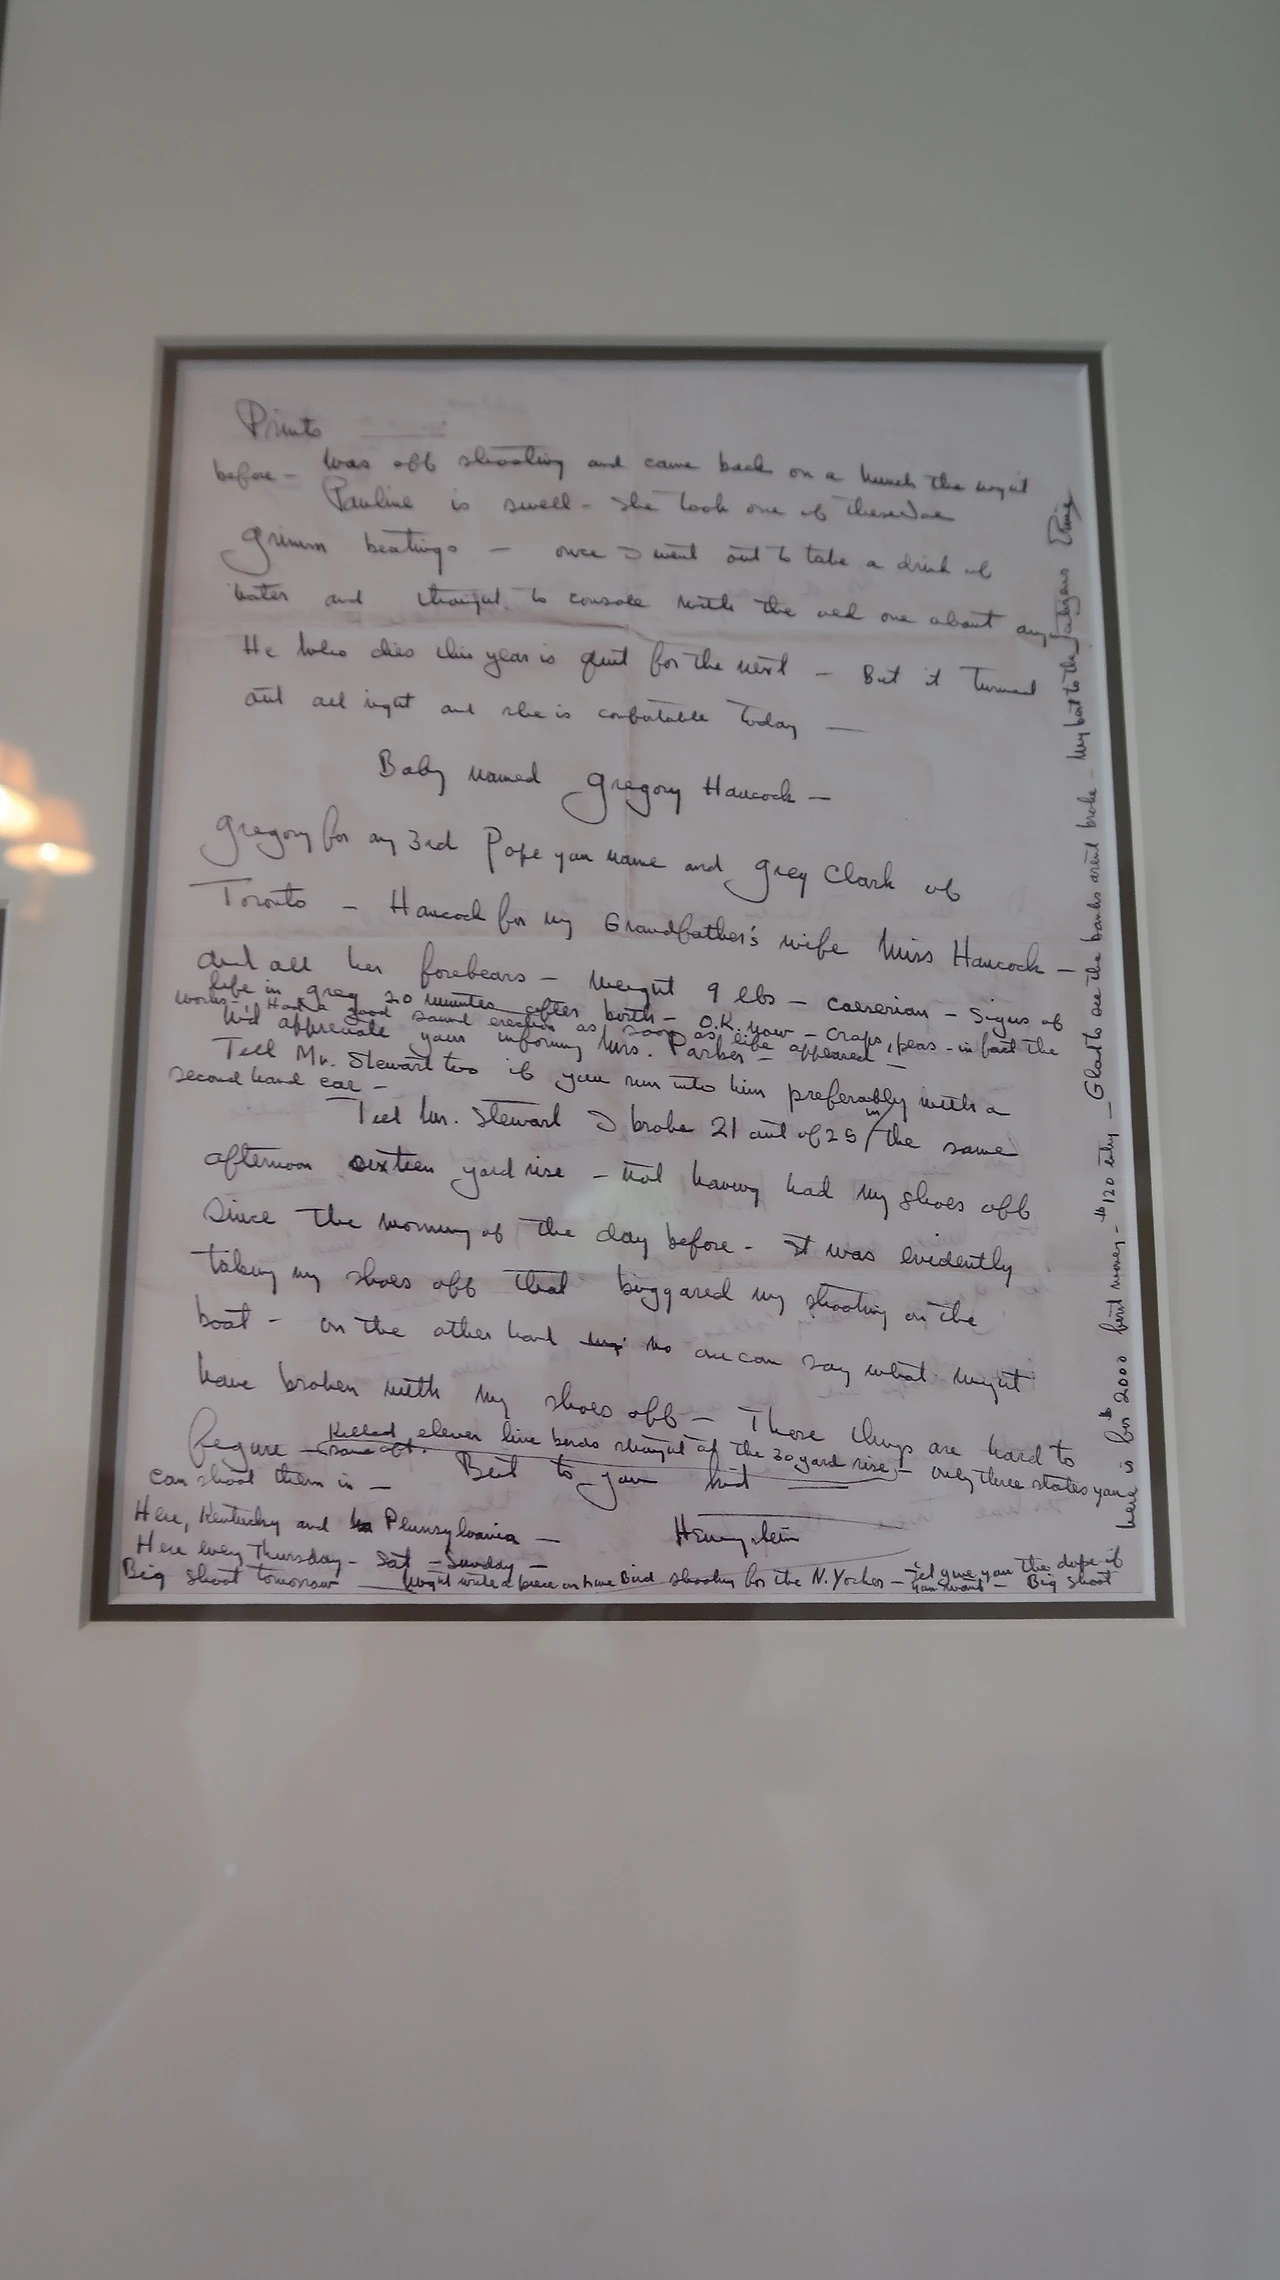 was off shooting and came back on a hunch the night
before –
Pauline is swell – She took one of these
Grimm beatings – once I went out to take a drink of
water and thought to console with the old one about any
He who dies this year is quit for the next – But it turned
out all right and she is comfortable today —
Baby named Gregory Hancock —
Gregory for any 3rd Pope you name and Greg Clark of
Toronto – Hancock for my Grandfather's wife Miss Hancock –
and all her forebears – weight 9 lbs – caeserian – Signs of
life in greg 20 minutes after birth – O.K. now – craps, peas – in fact the
works – Had a good sound erection as soon as life appeared –
W'd appreciate your informing Mrs. Parker –
Tell Mr. Stewart too if you run into him preferably with a
second hand car –
Tell Mr. Stewart I broke 21 out of 25 in the same
afternoon sixteen yard rise – not having had my shoes off
since the morning of the day before – It was evidently
taking my shoes off that buggared my shooting on the
boat – on the other hand no one can say what might
have broken with my shoes off – These things are hard to
figure –
Killed eleven live birds straight at the 30 yard rise – only three states you
can shoot them in –
Best to you kid
Here, Kentucky and Plennsylvania –
Hemmystein
Here every Thursday – Sat – Sunday –
Big shoot tomorrow — Might write a piece on live Bird shooting for the N. Yorker – I'd give you the dope if
you want – Big shoot
here is for $2000 first money – $120 entry – Glad to see the banks arent broke – My best to the